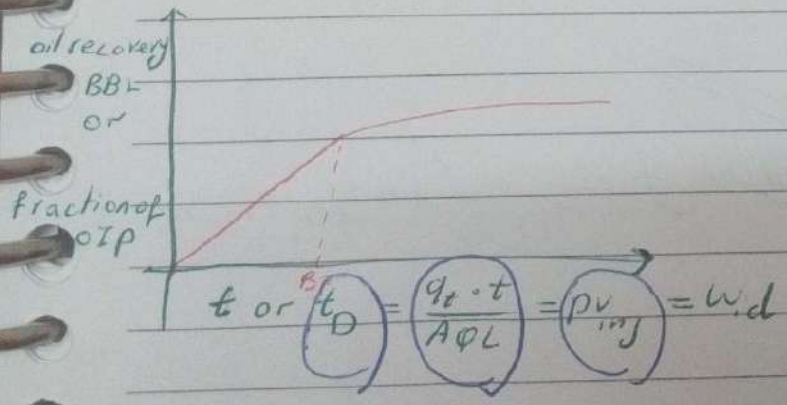 oil recovery
BBL
or
fraction of
OIP
BT
t or t_D = q_t · t / AφL = PV_inj = W_id